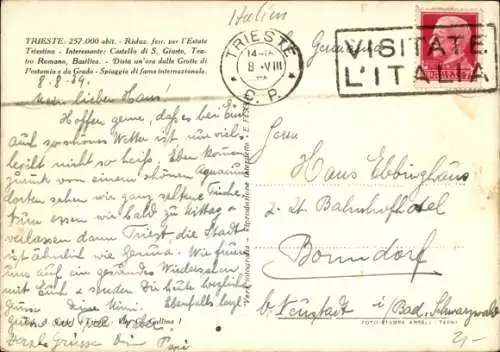 Italien
TRIESTE: 257.000 abit. - Riduz. ferr. per l'Estate
Triestina - Interessante: Castello di S. Giusto, Tea-
tro Romano, Basilica. - Dista un'ora dalle Grotte di
Postumia e da Grado - Spiaggia di fama internazionale.
TRIESTE
8 VIII
C. P.
VISITATE
L'ITALIA
Germania
8.8.39.
Mein lieber Hans!
Hoffen gerne, daß es bei Euch
auch so schönes Wetter ist nur viel-
leicht nicht so heiß. Eben kommen
zurück von einem schönen Aquarium
dorten sehen wir ganz seltene Fische.
Nun essen wir bald zu Mittag +
verlassen dann Triest, die Stadt
ist ähnlich wie Genua. Wir freuen
uns auf ein gesundes Wiedersehen
mit Euch + senden Dir heute herzliche
Grüsse Deine Mimi. Ebenfalls herzl.
herzl. Grüsse dein Papi
Herrn
Hans Ebbinghaus
z. Zt. Bahnhofhotel
Bonndorf
b. Neustadt i/Bad. Schwarzwald
Vera fotografia - Riproduzione interdetta